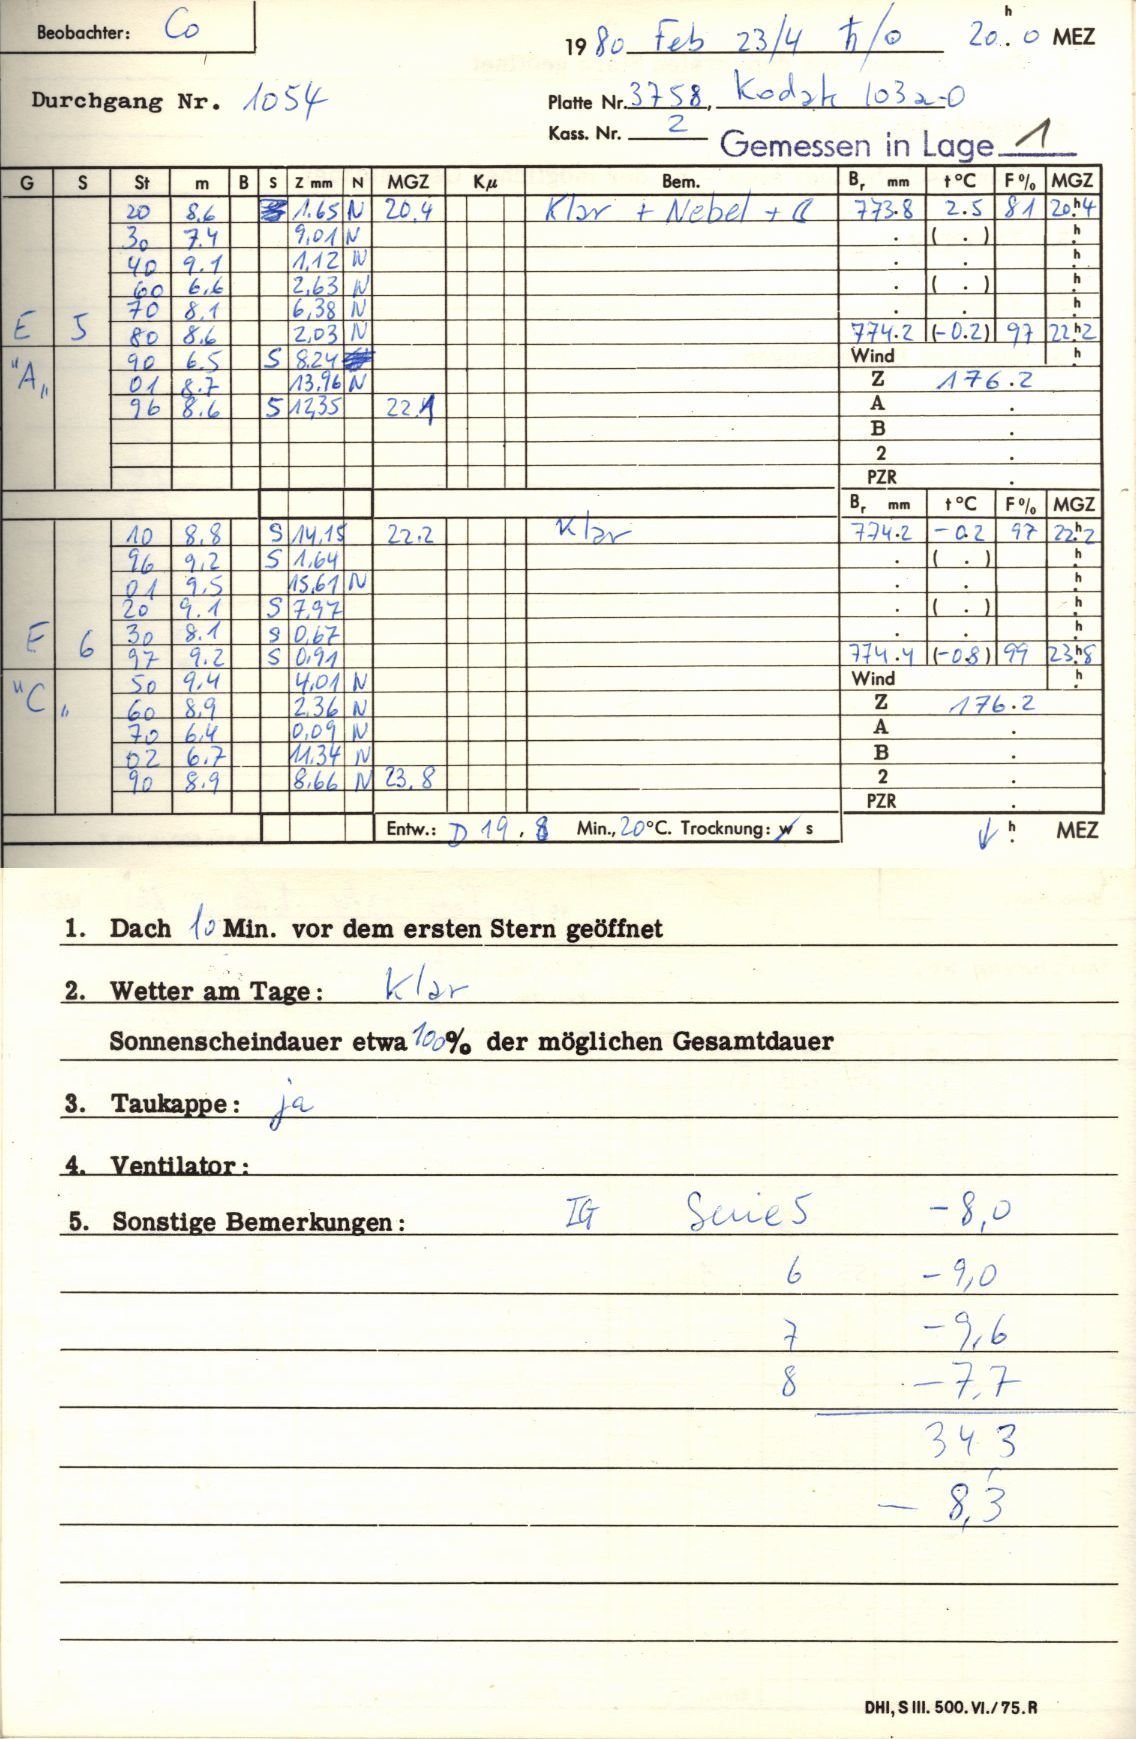 Beobachter: Co
1980 Feb 23/4 ♄/☉ 20.h0 MEZ
Durchgang Nr. 1054
Platte Nr. 3758, Kodak 103a-O
Kass. Nr. 2
Gemessen in Lage 1
G S St m B S Z mm N MGZ Kμ Bem. Br mm t°C F% MGZ
20 8.6 1.65 N 20.4 Klar + Nebel + ☾ 773.8 2.5 81 20.h4
30 7.4 9,01 N . ( . ) h.
40 9.1 1,12 N . . h.
60 6.6 2,63 N . ( . ) h.
70 8.1 6,38 N . . h.
E 5 80 8.6 2,03 N 774.2 (-0.2) 97 22.h2
"A„ 90 6.5 S 8.24 Wind h.
01 8.7 13,96 N Z 176.2
96 8.6 S 12,35 22.1 A .
B .
2 .
PZR .
Br mm t°C F% MGZ
10 8.8 S 14,15 22.2 Klar 774.2 -0.2 97 22.h2
96 9.2 S 1.64 . ( . ) h.
01 9.5 15,61 N . . h.
20 9.1 S 7,97 . ( . ) h.
30 8.1 S 0,67 . . h.
E 6 97 9.2 S 0,91 774.4 (-0.8) 99 23.h8
"C„ 50 9.4 4,01 N Wind h.
60 8.9 2,36 N Z 176.2
70 6.4 0,09 N A .
02 6.7 11,34 N B .
90 8.9 8,66 N 23.8 2 .
PZR .
Entw.: D 19, 8 Min., 20°C. Trocknung: w s ↓ h. MEZ
1. Dach 10 Min. vor dem ersten Stern geöffnet
2. Wetter am Tage: Klar
Sonnenscheindauer etwa 100% der möglichen Gesamtdauer
3. Taukappe: ja
4. Ventilator:
5. Sonstige Bemerkungen: IG Serie 5 -8,0
6 -9,0
7 -9,6
8 -7,7
343
- 8,3
DHI, S III. 500. VI./75. R